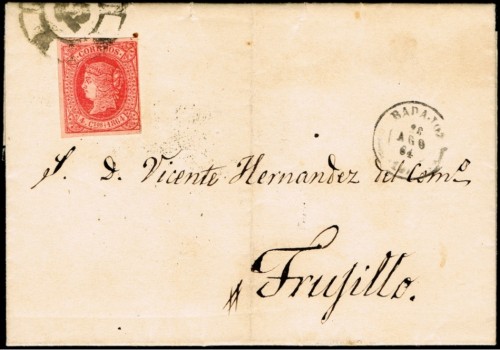 CORREOS
4 CUOS 1864
BADAJOZ
26
AGO
64
S. D. Vicente Hernandez del Comº
Trujillo.